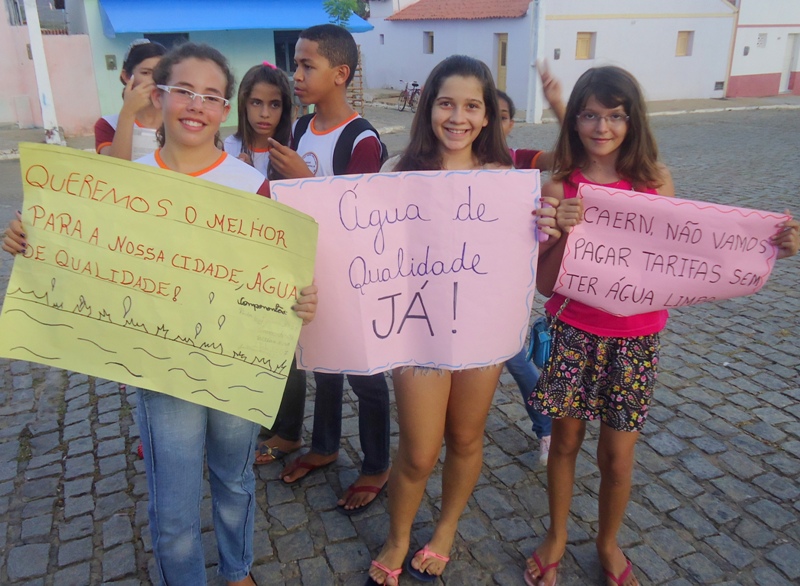 QUEREMOS O MELHOR
PARA A NOSSA CIDADE, ÁGUA
DE QUALIDADE!
Componentes
Água de
Qualidade
JÁ!
CAERN, NÃO VAMOS
PAGAR TARIFAS SEM
TER ÁGUA